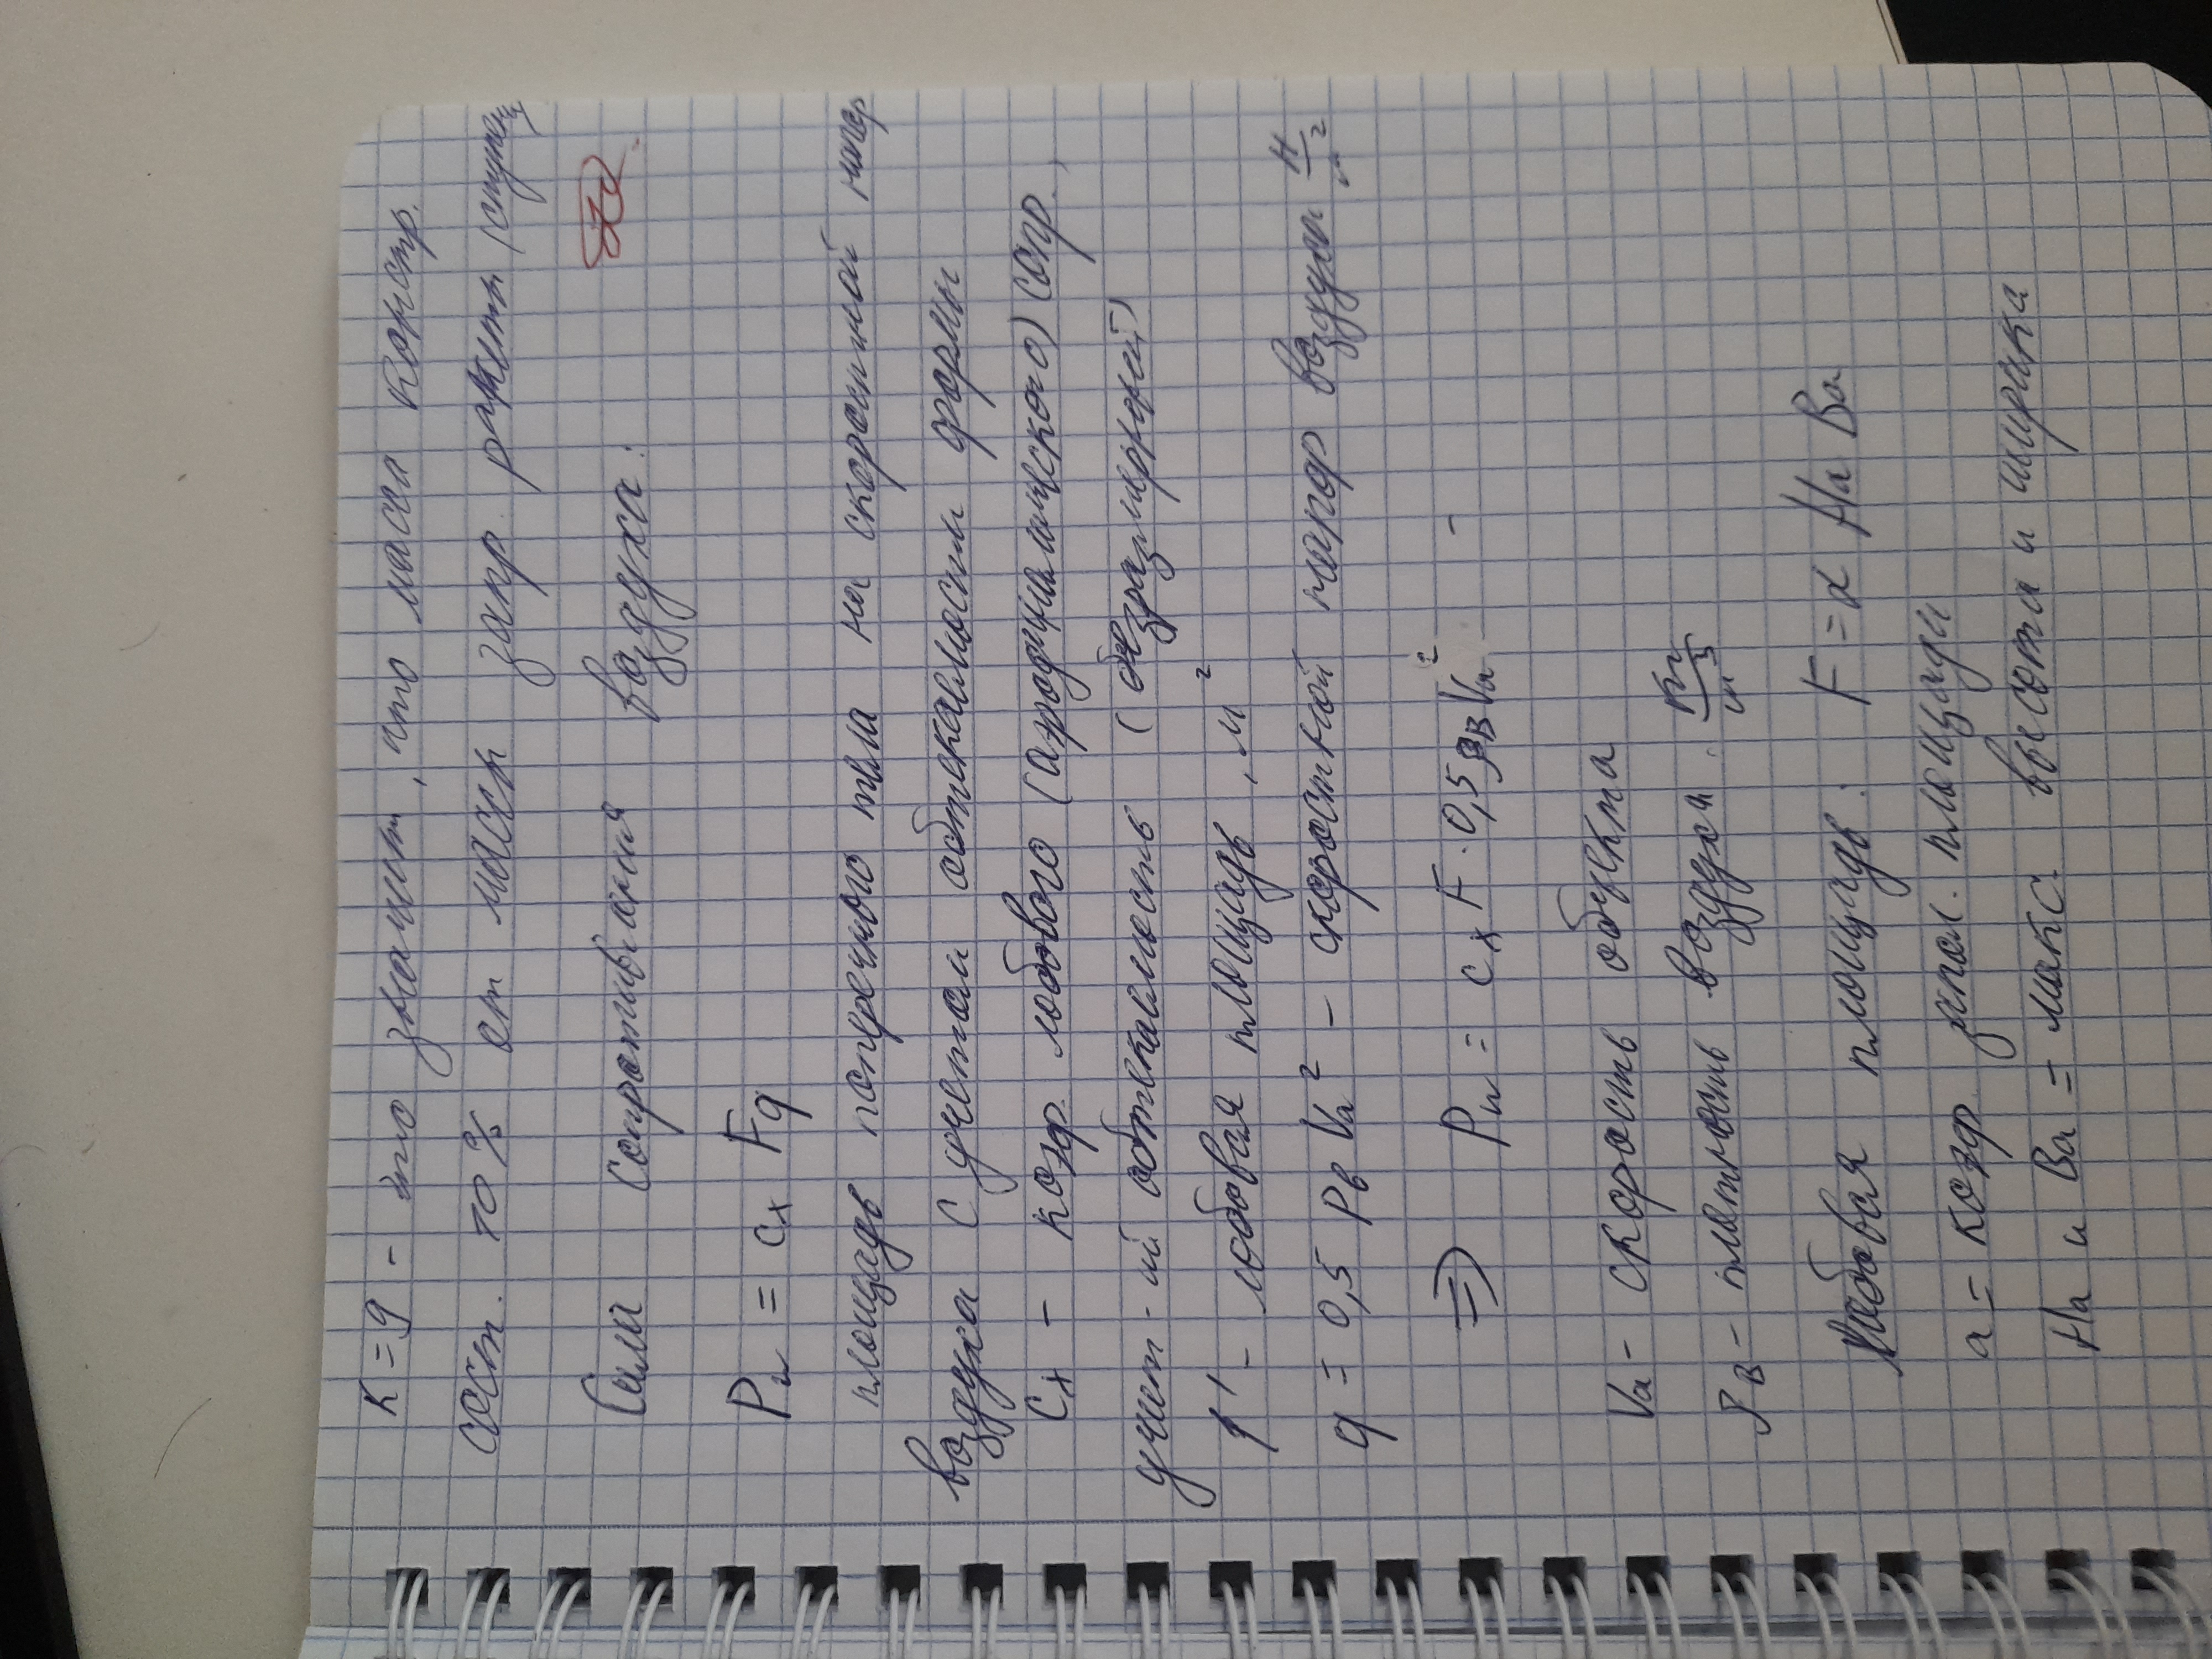 K = 9 - это значит, что масса констр.
сост. 10% от массы запр. ракеты (ступени
Сила сопротивления воздуха:
Pw = cx Fq
площадь поперечного тела на скоростной напор
воздуха с учетом обтекаемости формы
Cx - коэф. лобового (аэродинамического) сопр.,
учит-ий обтекаемость (безразмерный)
F - лобовая площадь, м²
q = 0,5 ρв Va² - скоростной напор воздуха Н/м²
⇒ Pw = cx F · 0,5 ρв Va² -
Va - скорость объекта
ρв - плотность воздуха. кг/м³
Лобовая площадь: F = α Ha Ba
a = коэф. запол. площади
Ha и Ba = макс. высота и ширина